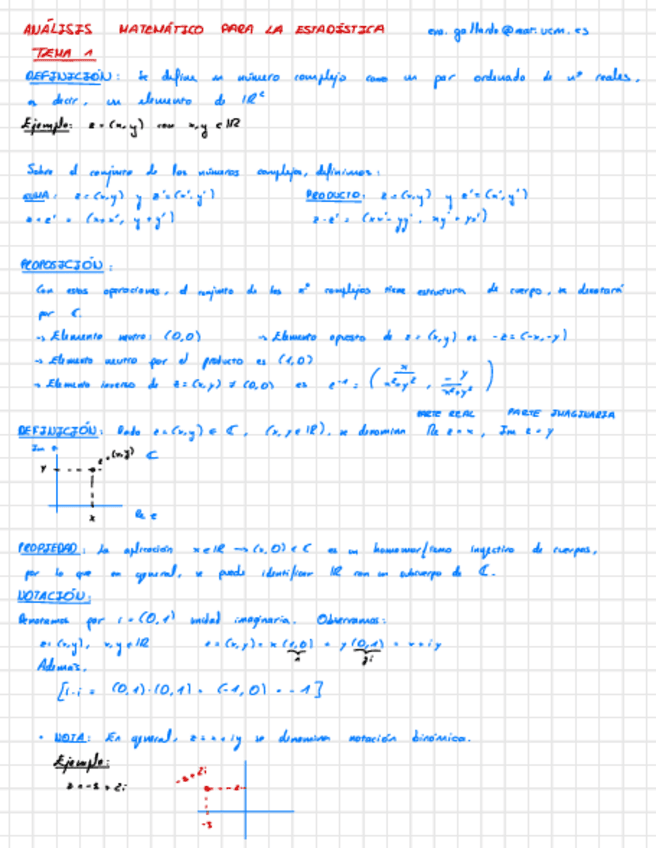 ANÁLISIS MATEMÁTICO PARA LA ESTADÍSTICA eva.gallardo@mat.ucm.es
TEMA 1
DEFINICIÓN: Se define un número complejo como un par ordenado de nº reales,
es decir, un elemento de IR²
Ejemplo: z = (x,y) con x,y ∈ IR
Sobre el conjunto de los números complejos, definimos:
SUMA: z=(x,y) y z'=(x',y') PRODUCTO: z=(x,y) y z'=(x',y')
z+z' = (x+x', y+y') z·z' = (xx'-yy', xy'+yx')
PROPOSICIÓN:
Con estas operaciones, el conjunto de los nº complejos tiene estructura de cuerpo, se denotará
por C.
→ Elemento neutro: (0,0) → Elemento opuesto de z=(x,y) es -z=(-x,-y)
→ Elemento neutro por el producto es (1,0)
→ Elemento inverso de z=(x,y) ≠ (0,0) es z⁻¹ = (x/x²+y², -y/x²+y²)
PARTE REAL PARTE IMAGINARIA
DEFINICIÓN: Dado z=(x,y) ∈ C, (x,y ∈ IR), se denominan Re z=x, Im z=y
Im z
y z=(x,y) C
x Re z
PROPIEDAD: La aplicación x∈IR → (x,0) ∈ C es un homomorfismo inyectivo de cuerpos,
por lo que en general, se puede identificar IR con un subcuerpo de C.
NOTACIÓN:
Denotamos por i=(0,1) unidad imaginaria. Observamos:
z=(x,y), x,y∈IR z=(x,y)=x(1,0)+y(0,1)=x+iy
x yi
Además,
[i·i = (0,1)·(0,1) = (-1,0) = -1]
• NOTA: En general, z=x+iy se denomina notación binómica.
Ejemplo:
z=-3+2i
-3+2i
-3